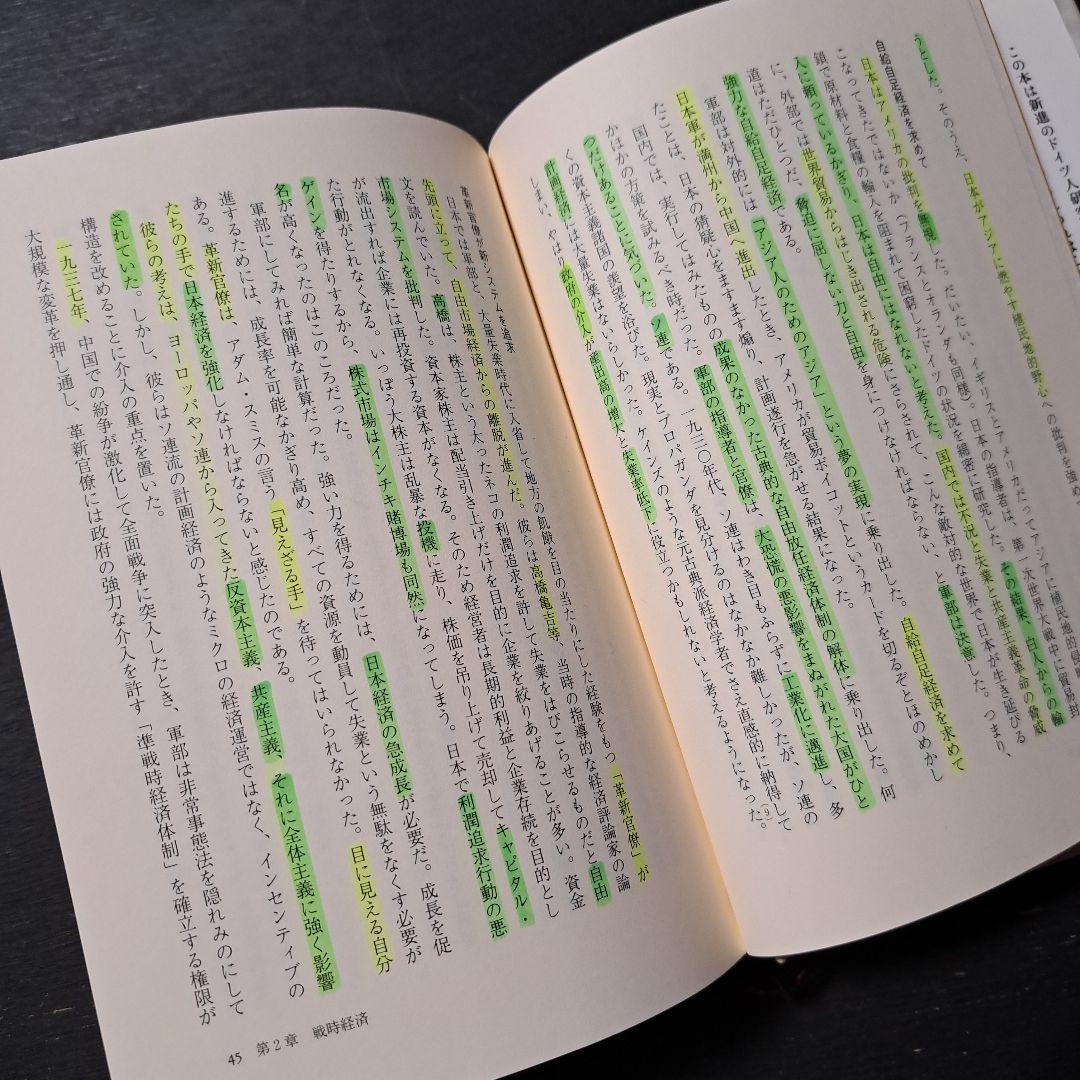 この本は新進のドイツ人研究
うとした。そのうえ、日本がアジアに燃やす植民地的野心への批判を強め
自給自足経済を求めて
日本はアメリカの批判を無視した。だいたい、イギリスとアメリカだってアジアに植民地的侵
こなってきたではないか（フランスとオランダも同様）。日本の指導者は、第一次世界大戦中に貿易封
鎖で原材料と食糧の輸入を阻まれて困窮したドイツの状況を綿密に研究した。その結果、白人からの輸
入に頼っているかぎり、日本は自由にはなれないと考えた。国内では不況と失業と共産主義革命の脅威
に、外部では世界貿易からはじき出される危険にさらされて、こんな敵対的な世界で日本が生き延びる
道はただひとつだ。脅迫に屈しない力と自由を身につけなければならない、と軍部は決意した。つまり、
強力な自給自足経済である。
軍部は対外的には「アジア人のためのアジア」という夢の実現に乗り出した。自給自足経済を求めて
日本軍が満州から中国へ進出したとき、アメリカが貿易ボイコットというカードを切るぞとほのめかし
たことは、日本の猜疑心をますます煽り、計画遂行を急がせる結果になった。
国内では、実行してはみたものの成果のなかった古典的な自由放任経済体制の解体に乗り出した。何
かほかの方策を試みるべき時だった。軍部の指導者と官僚は、大恐慌の悪影響をまぬがれた大国がひと
つだけあることに気づいた。ソ連である。一九三〇年代、ソ連はわき目もふらずに工業化に邁進し、多
くの資本主義諸国の羨望を浴びた。現実とプロパガンダを見分けるのはなかなか難しかったが、ソ連の
計画経済には大量失業はないらしかった。ケインズのような元古典派経済学者でさえ直感的に納得して
しまい、やはり政府の介入が産出高の増大と失業率低下に役立つかもしれないと考えるようになった。(9)
革新官僚が新システムを追求
日本では軍部と、大量失業時代に入省して地方の飢餓を目の当たりにした経験をもつ「革新官僚」が
先頭に立って、自由市場経済からの離脱が進んだ。彼らは高橋亀吉等、当時の指導的な経済評論家の論
文を読んでいた。高橋は、株主という太ったネコの利潤追求を許して失業をはびこらせるものだと自由
市場システムを批判した。資本家株主は配当引き上げだけを目的に企業を絞りあげることが多い。資金
が流出すれば企業には再投資する資本がなくなる。そのため経営者は長期的利益と企業存続を目的とし
た行動がとれなくなる。いっぽう大株主は乱暴な投機に走り、株価を吊り上げて売却してキャピタル・
ゲインを得たりするから、株式市場はインチキ賭博場も同然になってしまう。日本で利潤追求行動の悪
名が高くなったのはこのころだった。
軍部にしてみれば簡単な計算だった。強い力を得るためには、日本経済の急成長が必要だ。成長を促
進するためには、成長率を可能なかぎり高め、すべての資源を動員して失業という無駄をなくす必要が
ある。革新官僚は、アダム・スミスの言う「見えざる手」を待ってはいられなかった。目に見える自分
たちの手で日本経済を強化しなければならないと感じたのである。
彼らの考えは、ヨーロッパやソ連から入ってきた反資本主義、共産主義、それに全体主義に強く影響
されていた。しかし、彼らはソ連流の計画経済のようなミクロの経済運営ではなく、インセンティブの
構造を改めることに介入の重点を置いた。
一九三七年、中国での紛争が激化して全面戦争に突入したとき、軍部は非常事態法を隠れみのにして
大規模な変革を押し通し、革新官僚には政府の強力な介入を許す「準戦時経済体制」を確立する権限が
45　第2章　戦時経済